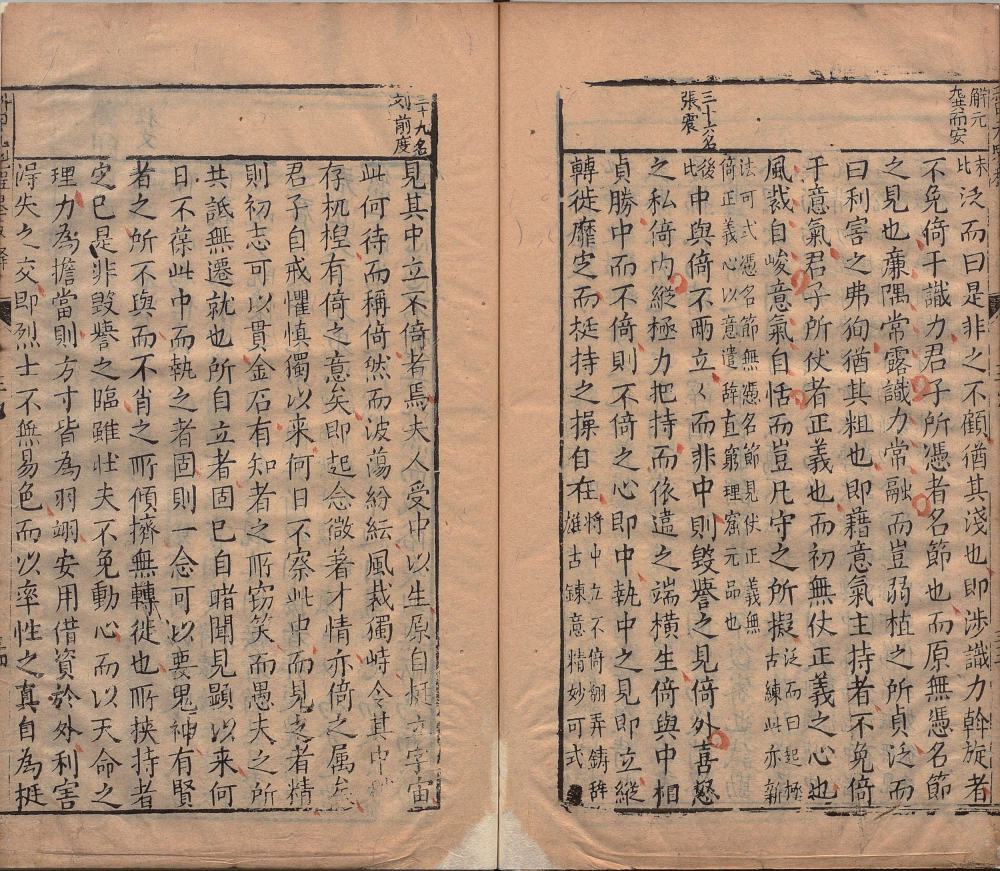 解元
九共而安
末比
泛而曰是非之不顧猶其淺也即涉識力斡旋者
不免倚于識力君子所憑者名節也而原無憑名節
之見也廉隅常露識力常融而豈弱植之所貞泛而
曰利害之弗狥猶其粗也即藉意氣主持者不免倚
于意氣君子所伏者正義也而初無仗正義之心也
風裁自峻意氣自恬而豈凡守之所擬
泛而曰起極
古練此亦新
法可式憑名節無憑名節見伏正義無
倚正義心以意遣辞直窮理窟元品也
三十六名
張震
後比
中與倚不兩立々而非中則毀譽之見倚外喜怒
之私倚內縱極力把持而依違之端橫生倚與中相
貞勝中而不倚則不倚之心即中執中之見即立縱
轉徙靡定而挺持之操自在
將中立不倚翻弄鑄辞
雄古鍊意精妙可式
三十九名
刘前度
見其中立不倚者焉夫人受中以生原自挺立宇宙
此何待而稱倚然而波蕩紛紜風裁獨峙令其中
存杌棿有倚之意矣即起念微著才情亦倚之属矣
君子自戒懼慎獨以来何日不察此中而見之者精
則初志可以貫金石有知者之所窃笑而愚夫之所
共詆無遷就也所自立者固已自睹聞見顯以来何
日不葆此中而執之者固則一念可以要鬼神有賢
者之所不與而不肖之所傾擠無轉徙也所挾持者
定已是非毀譽之臨雖壯夫不免動心而以天命之
理力為擔當則方寸皆為羽翊安用借資於外利害
淂失之交即烈士不無易色而以率性之真自為挺